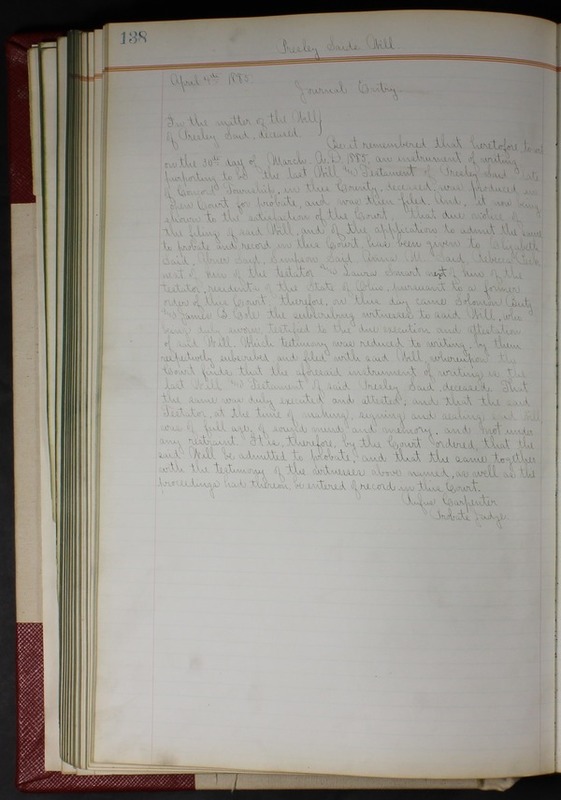 138
Presley Saids Will
April 7th 1885.
Journal Entry
In the matter of the Will
of Presley Said, deceased
Be it remembered that heretofore to wit
on the 30th day of March A.D. 1885, an instrument of writing
purporting to be the last Will and Testament of Presley Said late
of Township, in this County, deceased, was produced in
Court for probate, and was then filed. And, it now being
shown to the satisfaction of the Court, that due notice of
the filing of said Will, and of the application to admit the same
to probate and record in this Court has been given to Elizabeth
Said, Said, Sampson Said, Anna M. Said, Rebecca
next of kin of the testator and Laura Smart next of kin of the
testator, residents of the State of Ohio, pursuant to a former
order of this Court, therefore, on this day came Solomon
and James B. Cole the subscribing witnesses to said Will, who
being duly sworn testified to the due execution and attestation
of said Will. Which testimony was reduced to writing, by them
respectively subscribed and filed with said Will, whereupon the
Court finds that the aforesaid instrument of writing is the
last Will and Testament of said Presley Said, deceased. That
the same was duly executed and attested, and that the said
Testator, at the time of making, signing and sealing said Will
was of full age, of sound mind and memory, and not under
any restraint. It is, therefore, by the Court ordered, that the
said Will be admitted to probate, and that the same together
with the testimony of the witnesses above named, as well as the
proceedings had thereon be entered of record in this Court.
Rufus Carpenter
Probate Judge.